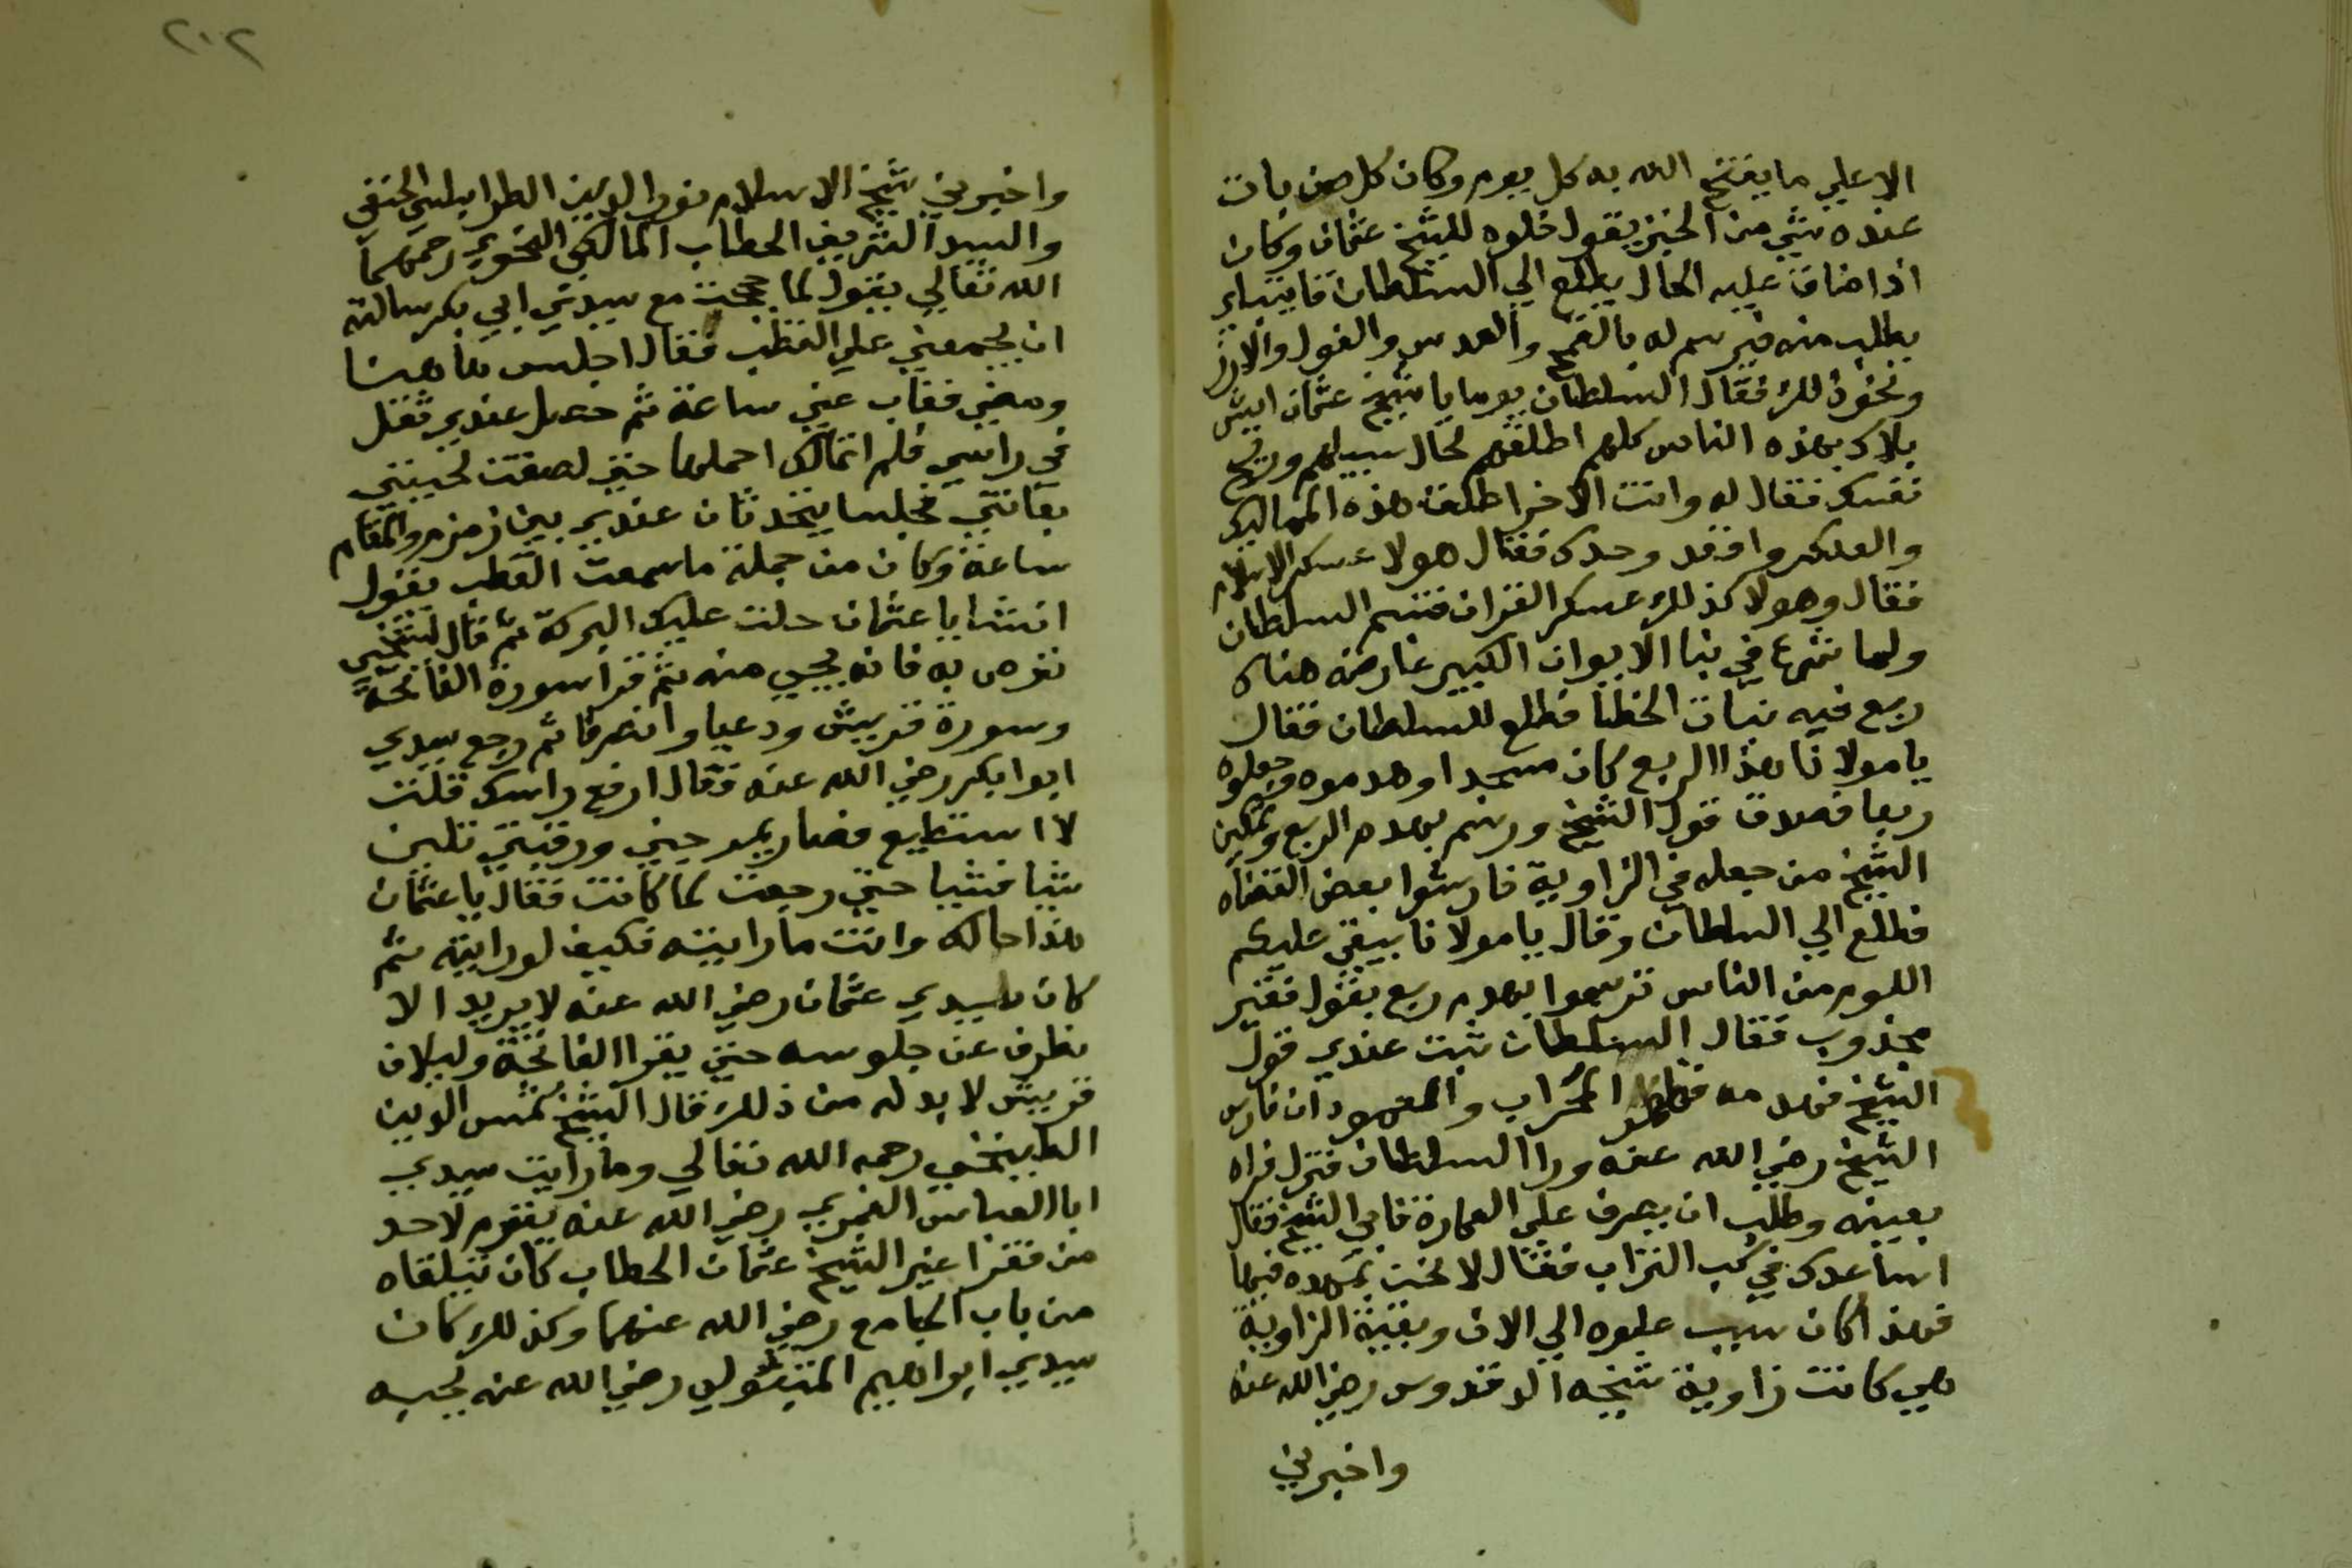 الا علي ما يفتح الله به كل يوم وكان كل من بات
عنده شي من الخبز يقول خلوه للشيخ عثمان وكان
اذا ضاق عليه الحال يطلع الي السلطان قايتباي
يطلب منه فيرسم له بالقمح والعدس والفول والارز
ونحو ذلك فقال السلطان يوما يا شيخ عثمان ايش
بلاك بهذه الناس كلهم اطلقهم لحال سبيلهم وريح
نفسك فقال له وانت الاخر اطلق هذه المماليك
والعسكر واقعد وحدك فقال هولا عسكر الاسلام
فقال وهولا كذلك عسكر القران فتبسم السلطان
ولما شرع في بنا الايوان الكبير عارضه هناك
ربع فيه بنات الخطا فطلع للسلطان فقال
يا مولانا هذا الربع كان مسجدا وهدموه وجعلوه
ربعا فصدق قول الشيخ ورسم بهدم الربع وتمكين
الشيخ من جعله في الزاوية فارشوا بعض القضاه
فطلع الي السلطان وقال يا مولانا يبقي عليكم
اللوم من الناس ترسموا بهدم ربع بقول فقير
مجذوب فقال السلطان ثبت عندي قول
الشيخ فهدمه فظهر المحراب والعمودان فارسل
الشيخ رضي الله عنه ورا السلطان فنزل فراه
بعينه وطلب ان يصرف علي العمارة فابي الشيخ فقال
اساعدك في كب التراب فقال لا نحن نمهده فيها
فهذا كان سبب علوه الي الان وبقية الزاوية
هي كانت زاوية شيخه الدقدوس رضي الله عنه
واخبرني
٢٠٢
واخبرني شيخ الاسلام نور الدين الطرابلسي الحنفي
والسيد الشريف الحطاب المالكي النحوي رحمهما
الله تعالي يقول لما حججت مع سيدي ابي بكر سالته
ان يجمعني علي القطب فقال اجلس هاهنا
ومضي فغاب عني ساعة ثم حصل عندي ثقل
في راسي فلم اتمالك احملها حتي لصقت لحيتي
بعانتي فجلسا يتحدثان عندي بين زمزم والمقام
ساعة وكان من جملة ما سمعت القطب يقول
انسنا يا عثمان حلت عليك البركة ثم قال لشيخي
توص به فانه يجي منه ثم قرا سورة الفاتحة
وسورة قريش ودعيا وانصرفا ثم رجع سيدي
ابوا بكر رضي الله عنه فقال ارفع راسك قلت
لا استطيع فصار يمرجني ورقبتي تلين
شيا فشيا حتي رجعت لما كانت فقال يا عثمان
هذا حالك وانت ما رايته فكيف لو رايته ثم
كان سيدي عثمان رضي الله عنه لا يريد الا
نظرف عن جلوسه حتي يقرا الفاتحة ولايلاف
قريش لا بد له من ذلك قال الشيخ شمس الدين
الطبيخي رحمه الله تعالي وما رايت سيدي
ابا العباس الغمري رضي الله عنه يقوم لاحد
من فقرا غير الشيخ عثمان الحطاب كان يتلقاه
من باب الجامع رضي الله عنهما وكذلك كان
سيدي ابراهيم المتبولي رضي الله عنه يحبه